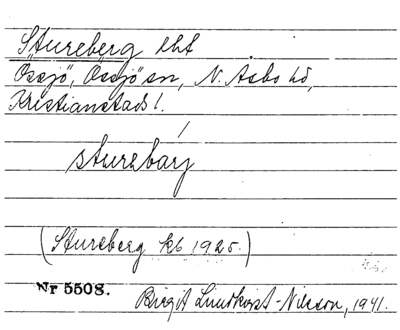 Stureberg lht
Össjö, Össjö sn, N. Åsbo hd,
Kristianstads l.
sturebärj
(Stureberg kb 1925.)
Nr 5508.
Birgit Lundkvist-Nilsson, 1941.